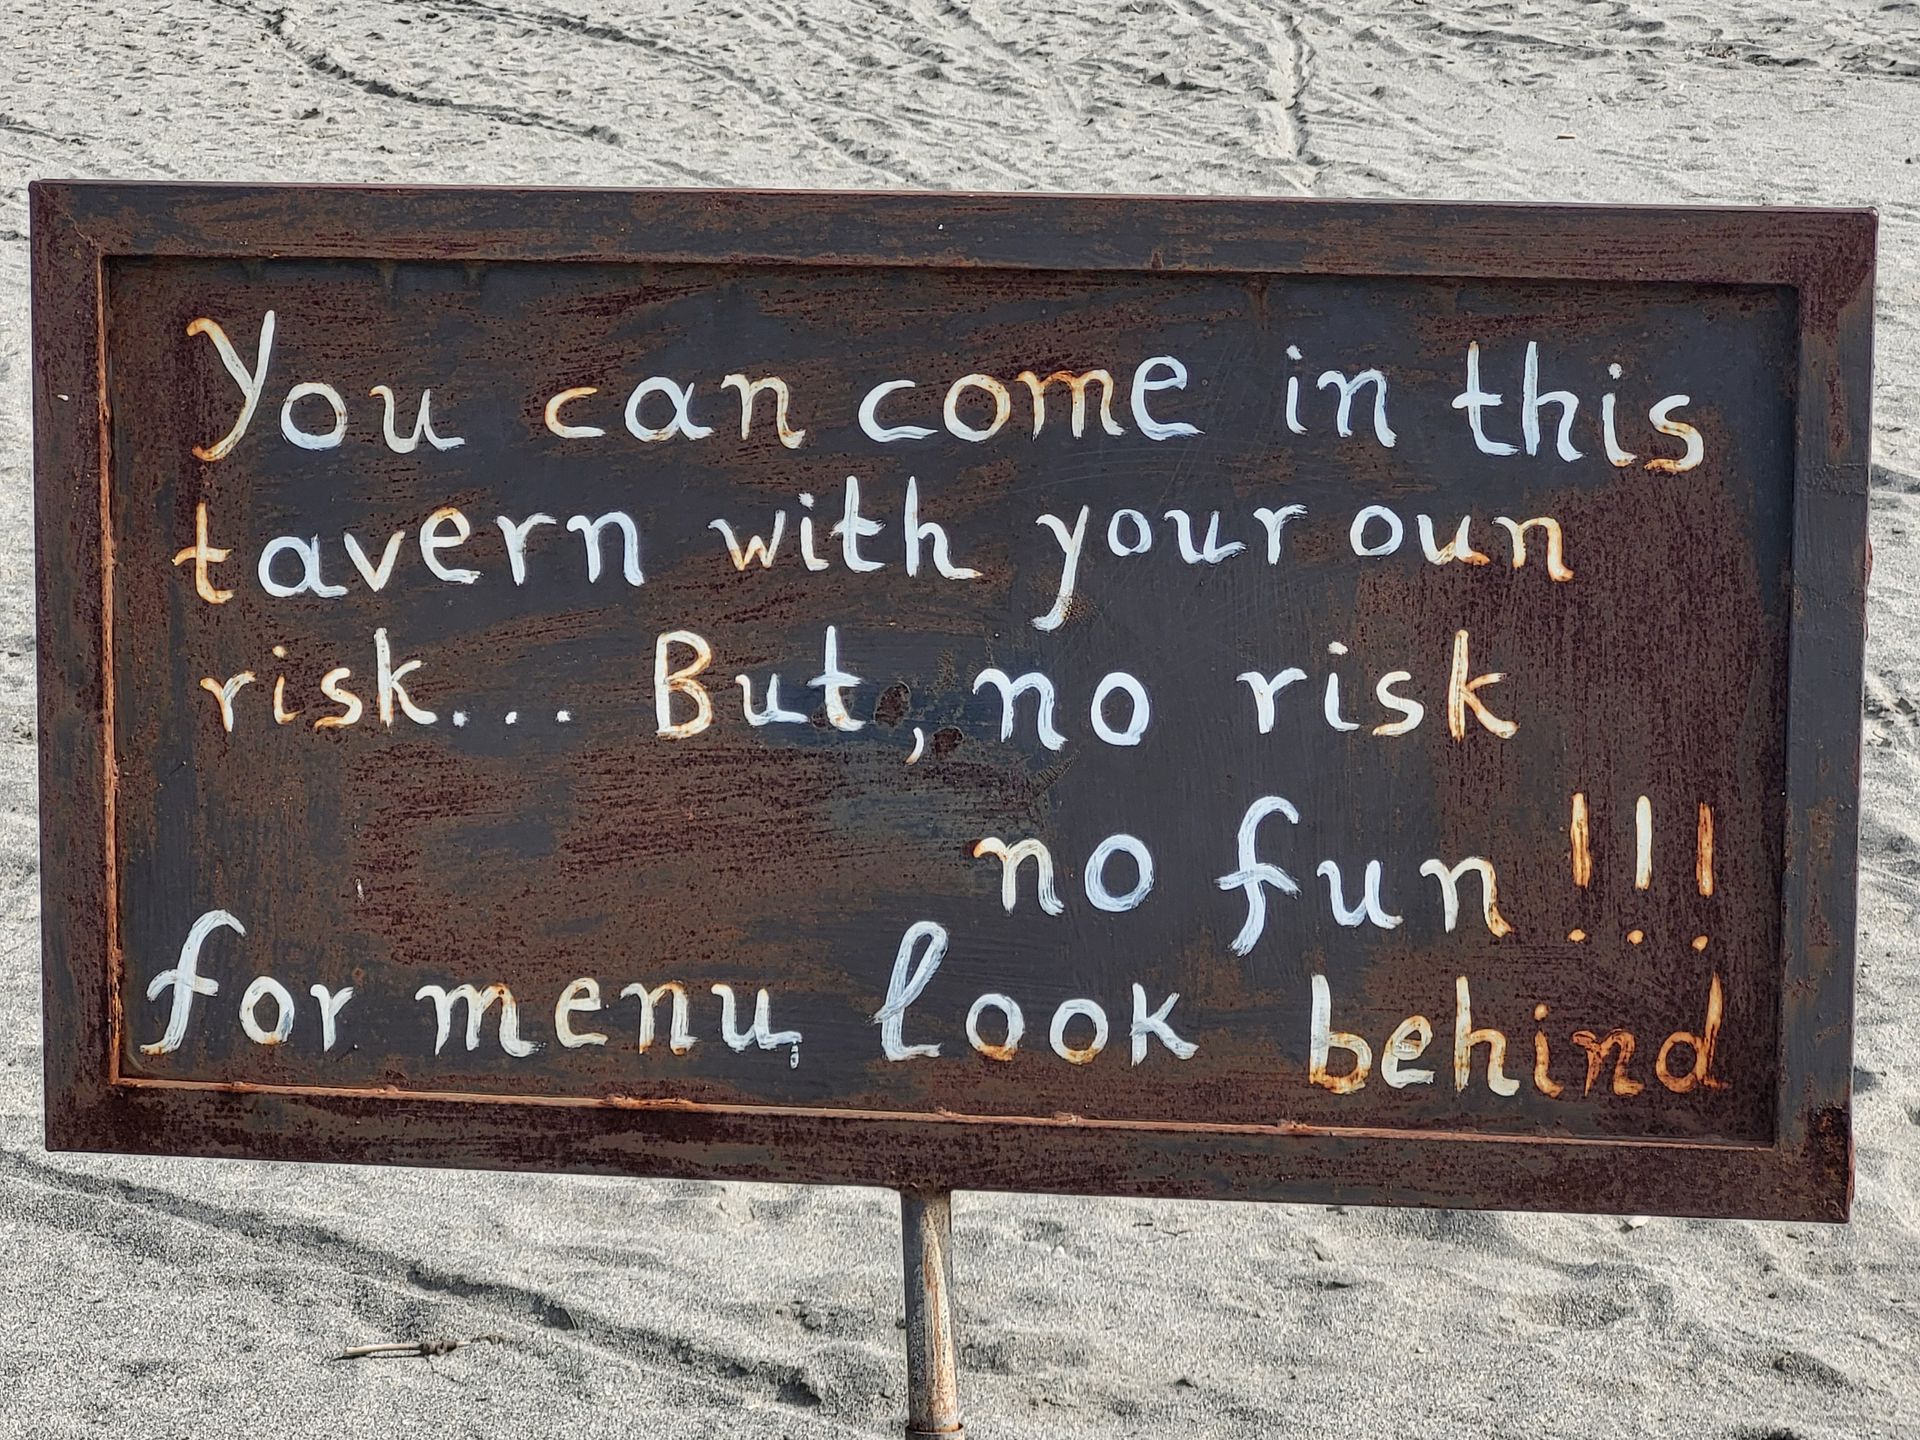 You can come in this
tavern with your oun
risk... But, no risk
no fun!!!
for menu, look behind